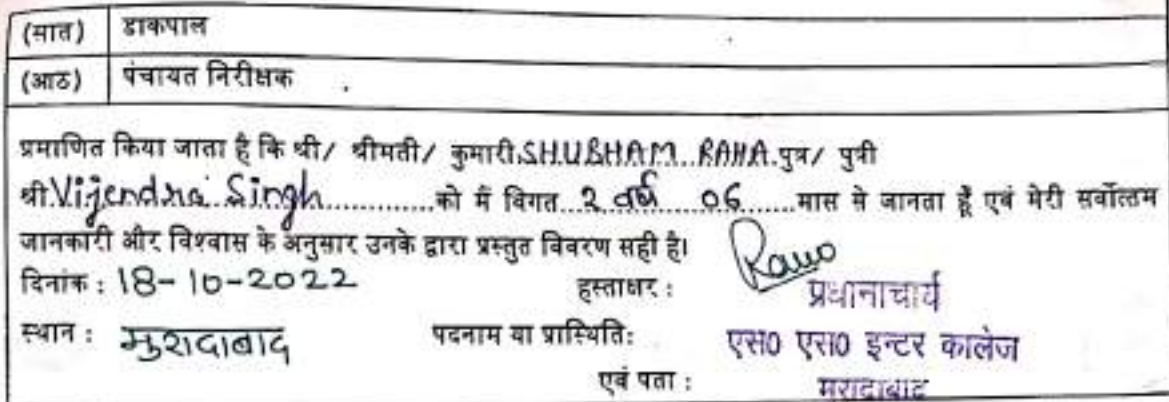 (सात) डाकपाल
(आठ) पंचायत निरीक्षक
प्रमाणित किया जाता है कि श्री/ श्रीमती/ कुमारी.SHUBHAM RAHA.पुत्र/ पुत्री
श्री.Vijendra Singh.............को मैं विगत..2 वर्ष 06......मास से जानता हूँ एवं मेरी सर्वोत्तम
जानकारी और विश्वास के अनुसार उनके द्वारा प्रस्तुत विवरण सही है।
दिनांक : 18-10-2022 हस्ताक्षर : प्रधानाचार्य
स्थान : मुरादाबाद पदनाम या प्रास्थिति: एस0 एस0 इन्टर कालेज
एवं पता : मुरादाबाद